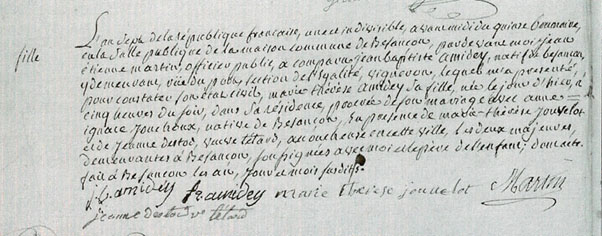 fille
L'an sept de la république française, une et indivisible, avant midi du quinze Brumaire,
en la Salle publique de la maison commune de Besançon, pardevant moi, jean
étienne martin, officier public, a comparu jean baptiste amidey, natif de besançon
y demeurant, rüe du pont, section de l'Egalité, vigneron, lequel m'a presenté,
pour constater son état civil, marie thérèse amidey sa fille, née le jour d'hier, à
cinq heures du soir, dans sa résidence, procréée de son mariage avec anne
ignace jouchoux, native de Besançon, En presence de marie-thérèse jouvelot
et de jeanne destod, veuve tétard, accoucheuse en cette ville, les deux majeures,
demeurantes à Besançon, soussignées avec moi et le père de l'enfant; dont acte
fait à Besançon les an, jour et mois susdits.
j b amidey amidey marie thérèse jouvelot Martin
jeanne destod ve tétard